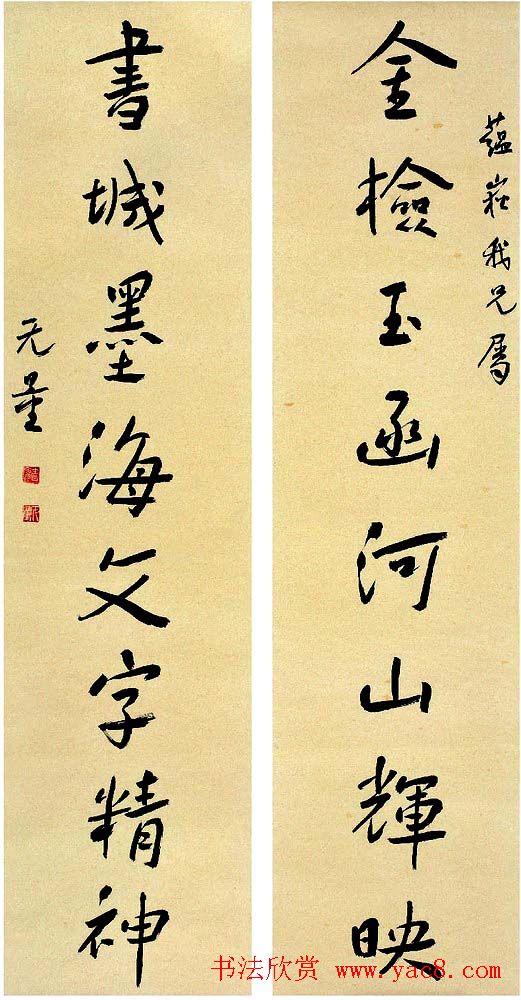 蕴崧我兄属
金檢玉函河山輝映
書城墨海文字精神
无量
书法欣赏 www.yac8.com